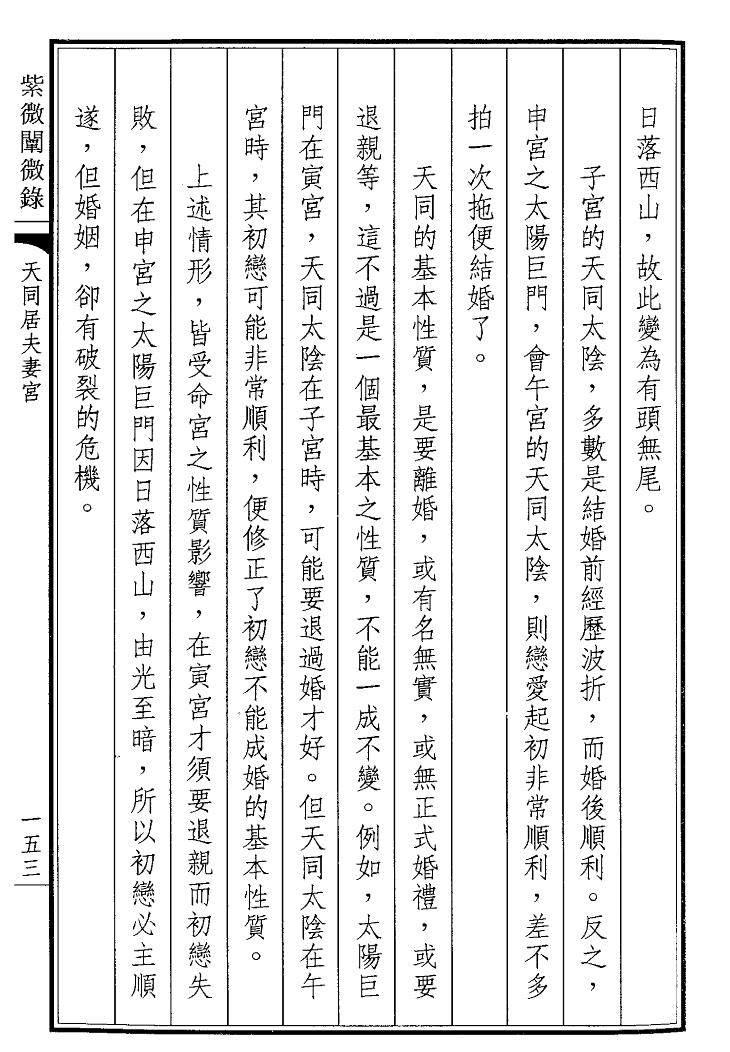 日落西山，故此變為有頭無尾。
子宮的天同太陰，多數是結婚前經歷波折，而婚後順利。反之，
申宮之太陽巨門，會午宮的天同太陰，則戀愛起初非常順利，差不多
拍一次拖便結婚了。
天同的基本性質，是要離婚，或有名無實，或無正式婚禮，或要
退親等，這不過是一個最基本之性質，不能一成不變。例如，太陽巨
門在寅宮，天同太陰在子宮時，可能要退過婚才好。但天同太陰在午
宮時，其初戀可能非常順利，便修正了初戀不能成婚的基本性質。
上述情形，皆受命宮之性質影響，在寅宮才須要退親而初戀失
敗，但在申宮之太陽巨門因日落西山，由光至暗，所以初戀必主順
遂，但婚姻，卻有破裂的危機。
紫微闡微錄
天同居夫妻宮
一五三